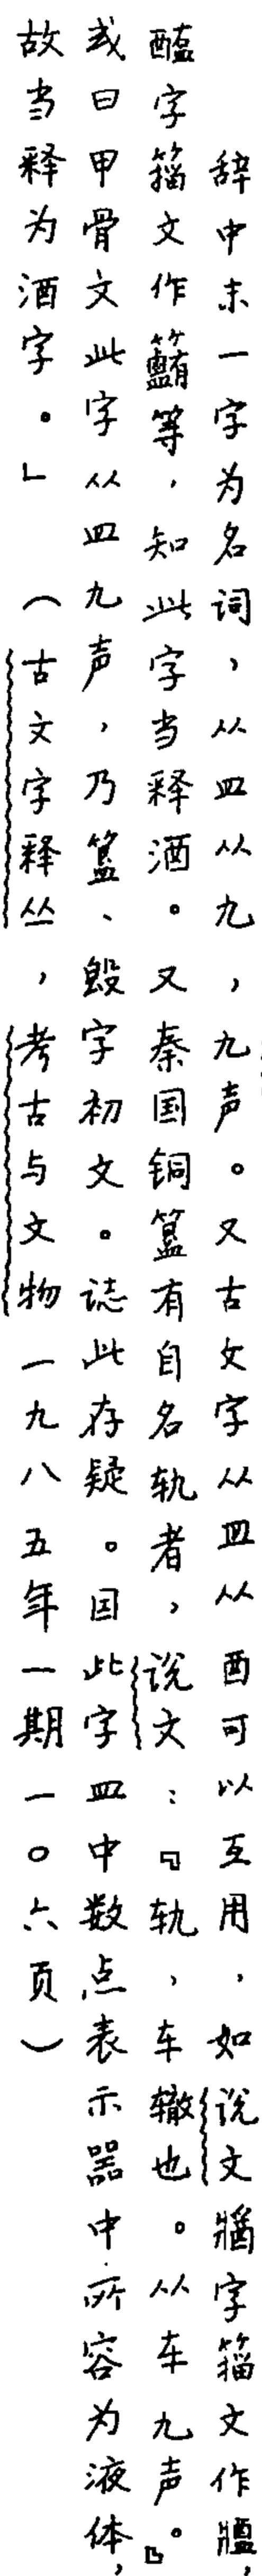 辞中末一字为名词，从皿从九，九声。又古文字从皿从酉可以互用，如说文牆字籀文作𤖕，
醢字籀文作𥃔等，知此字当释酒。又秦国铜簋有自名轨者，说文：『轨，车辙也。从车九声。』
或曰甲骨文此字从皿九声，乃簋、毁字初文。志此存疑。因此字皿中数点表示器中所容为液体，
故当释为酒字。」（古文字释丛，考古与文物一九八五年一期一〇六页）